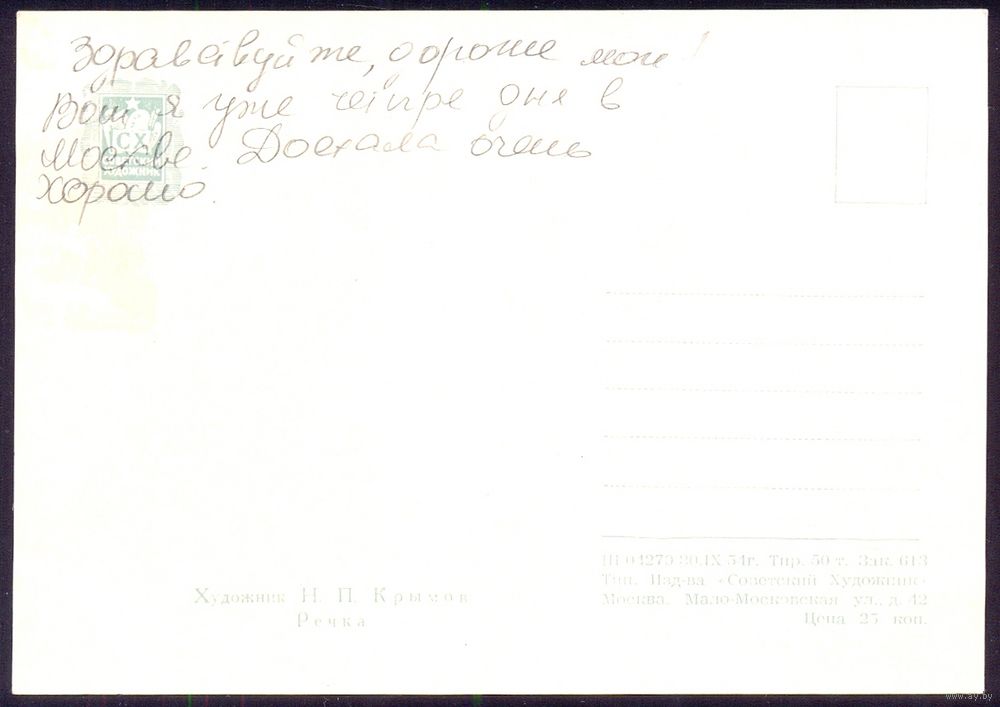 Здравствуйте, дорогие мои!
Вот я уже четыре дня в
Москве. Доехала очень
хорошо.
СХ
СОВЕТСКИЙ
ХУДОЖНИК
Художник Н. П. Крымов
Речка
Ш 04279 20.IX 54г. Тир. 50 т. Зак. 613
Тип. Изд-ва «Советский Художник»
Москва. Мало-Московская ул., д. 42
Цена 25 коп.
www.ay.by